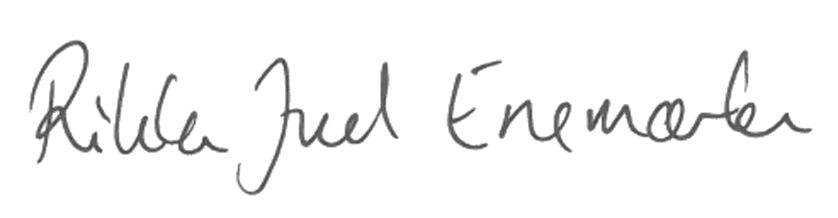 Rikke Juel Enemærke